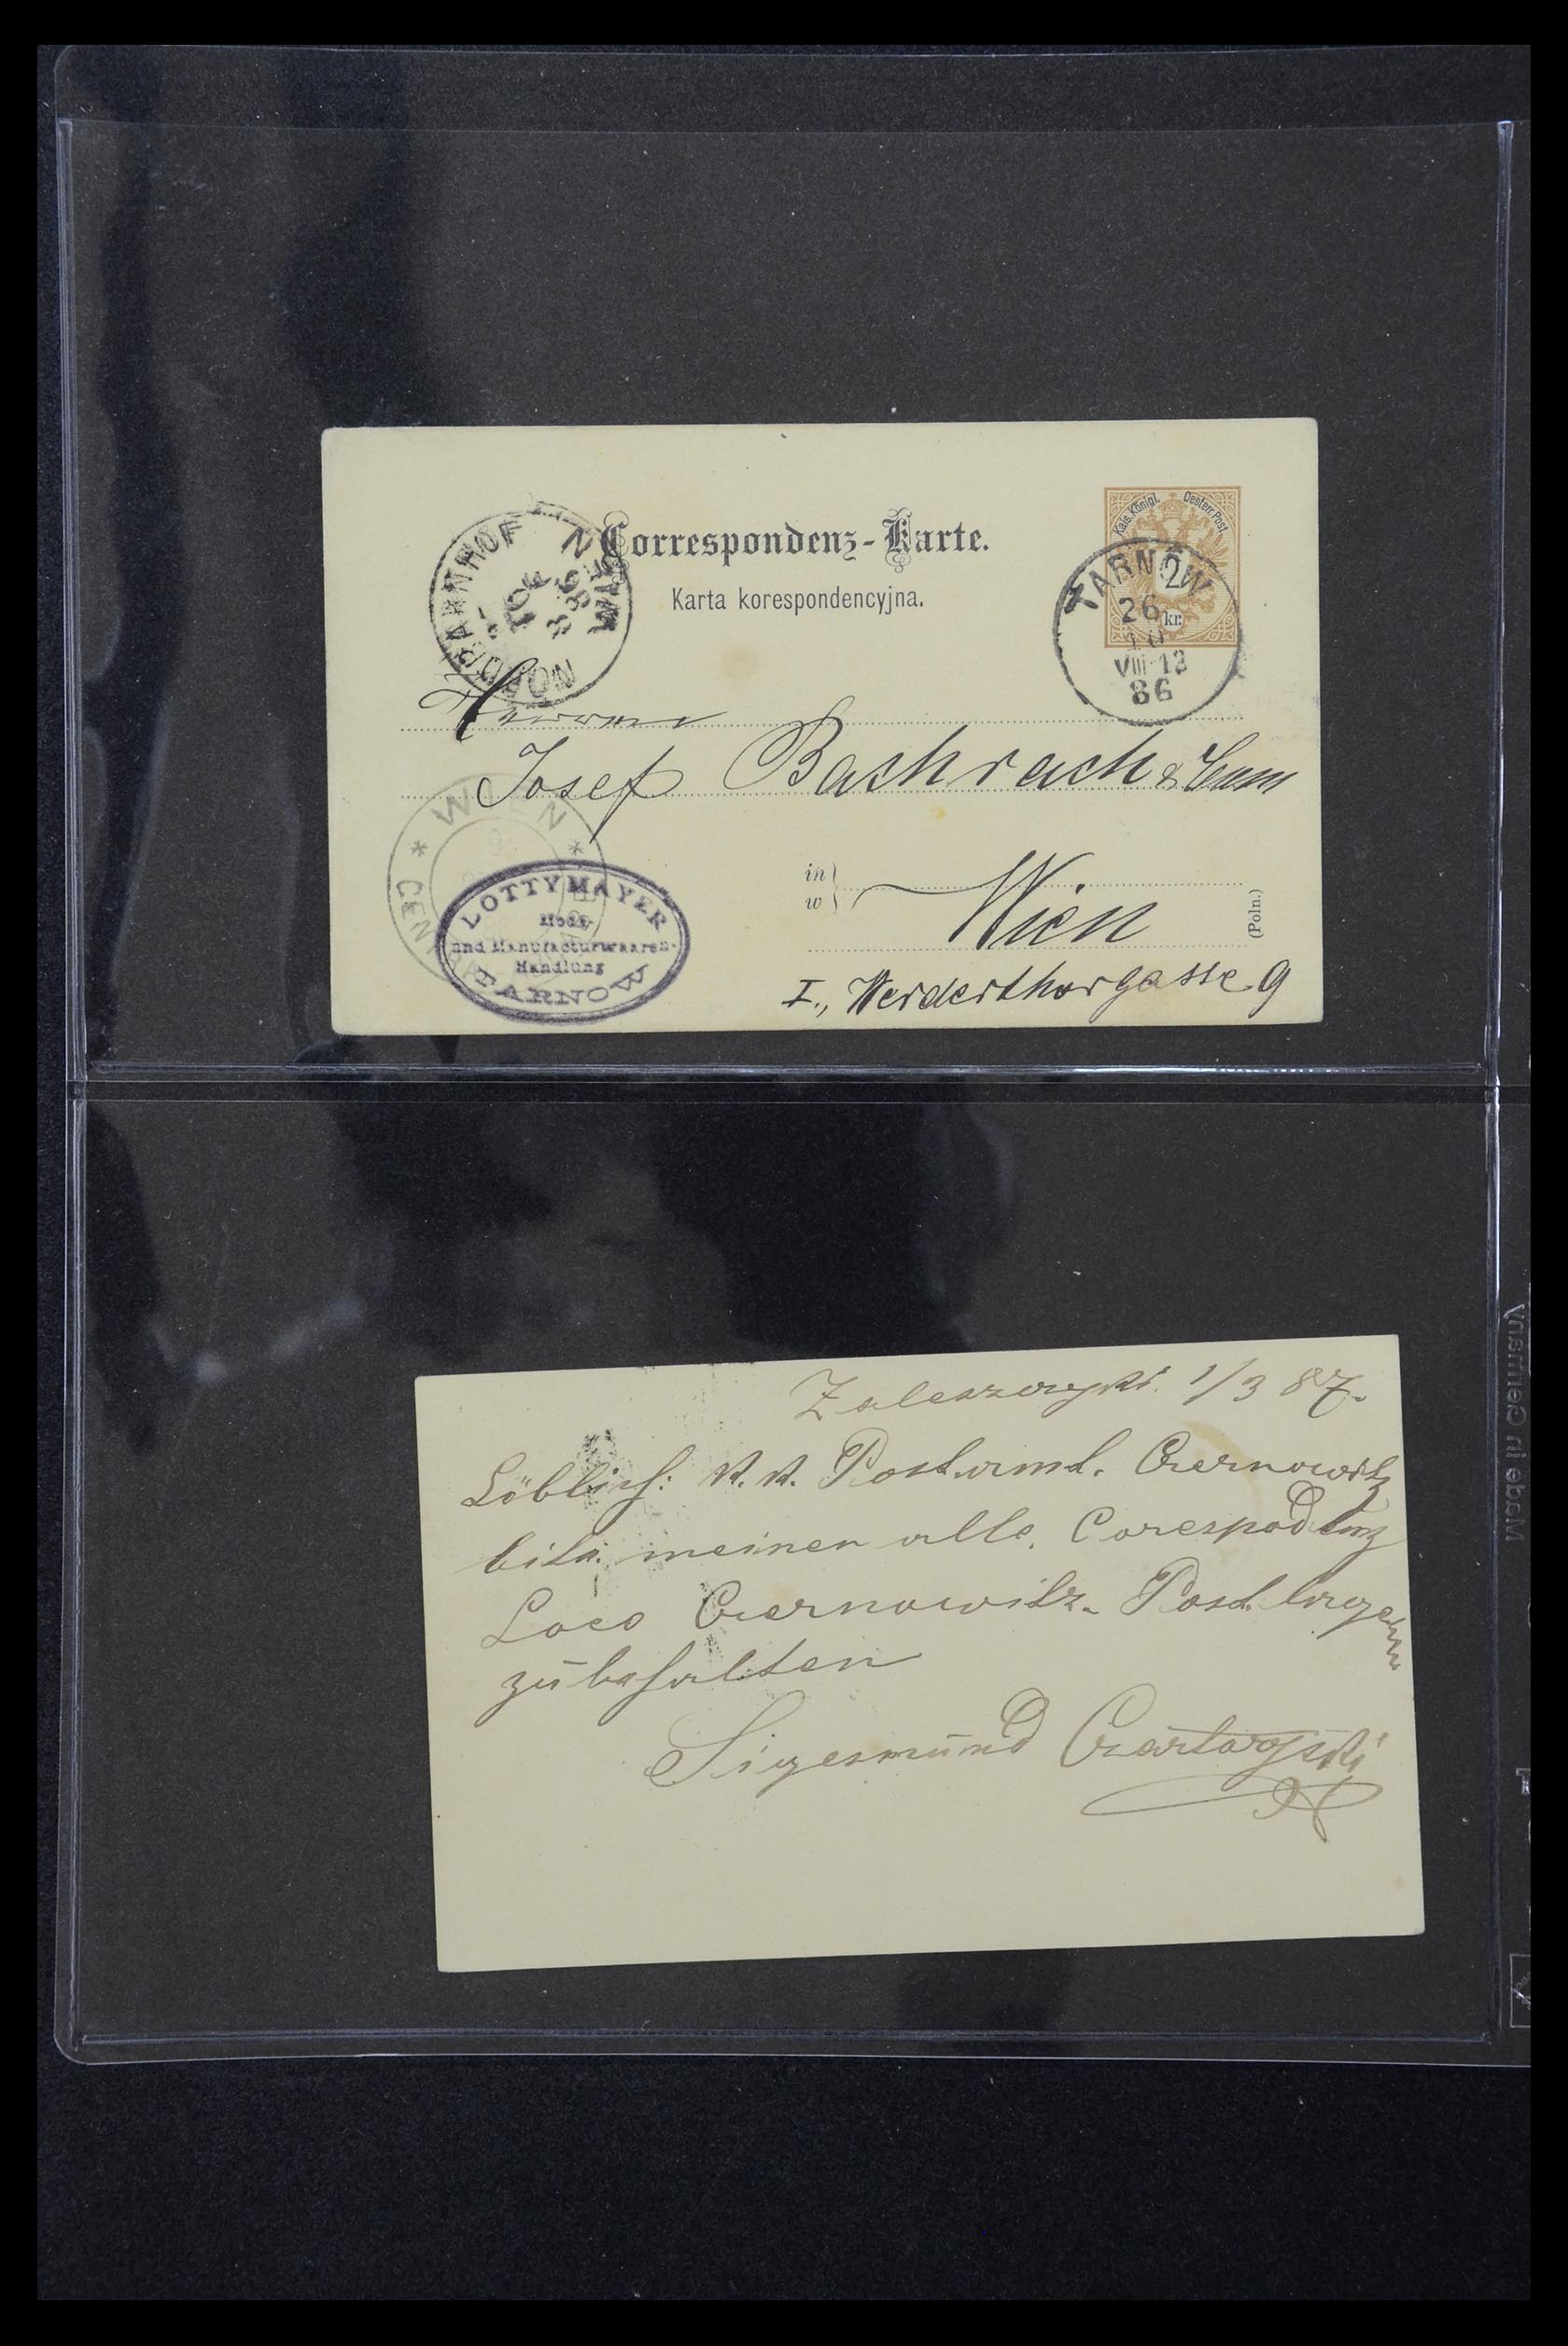 Correspondenz-Karte.
Karta korespondencyjna.
Kais. Königl. Oesterr. Post.
2 kr.
TARNÓW
26
10
VIII-12
86
NORDBAHNHOF
WIEN
Herren
Josef Bachrach & Com
WIEN
LOTTY MAYER
Mode-
und Manufacturwaaren-
Handlung
TARNOW
in
w
Wien
(Poln.)
I., Werderthorgasse 9
Zaleszczyki. 1/3 87.
Löblich: K. K. Postamt. Czernowitz
bitte meinen alle. Corespodenz
Loco Czernowitz. Post. lagern
zu behalten
Sigesmund Czartoryski
Made in Germany